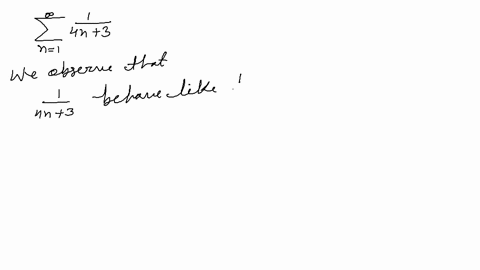 \sum_{n=1}^{\infty} \frac{1}{4n+3}
We observe that
\frac{1}{4n+3} behave like